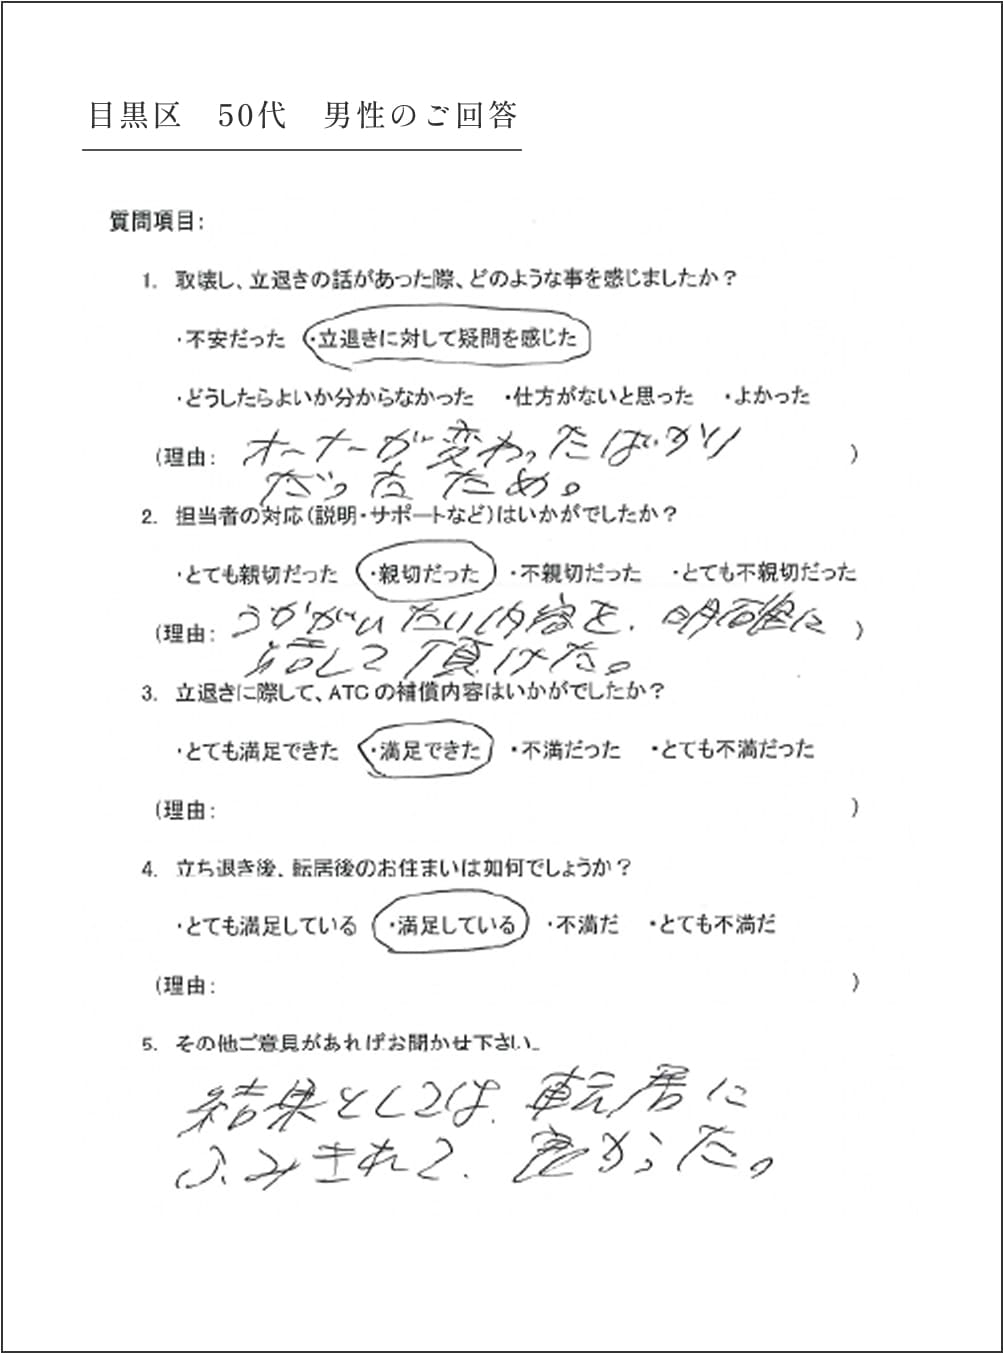 目黒区 50代 男性のご回答
質問項目:
1. 取壊し、立退きの話があった際、どのような事を感じましたか？
・不安だった ・立退きに対して疑問を感じた
・どうしたらよいか分からなかった ・仕方がないと思った ・よかった
(理由: オーナーが変わったばかり )
だったため。
2. 担当者の対応(説明・サポートなど)はいかがでしたか？
・とても親切だった ・親切だった ・不親切だった ・とても不親切だった
(理由: うかがいたい内容を、明確に )
話して頂けた。
3. 立退きに際して、ATCの補償内容はいかがでしたか？
・とても満足できた ・満足できた ・不満だった ・とても不満だった
(理由: )
4. 立ち退き後、転居後のお住まいは如何でしょうか？
・とても満足している ・満足している ・不満だ ・とても不満だ
(理由: )
5. その他ご意見があればお聞かせ下さい。
結果としては、転居に
ふみきれて、良かった。